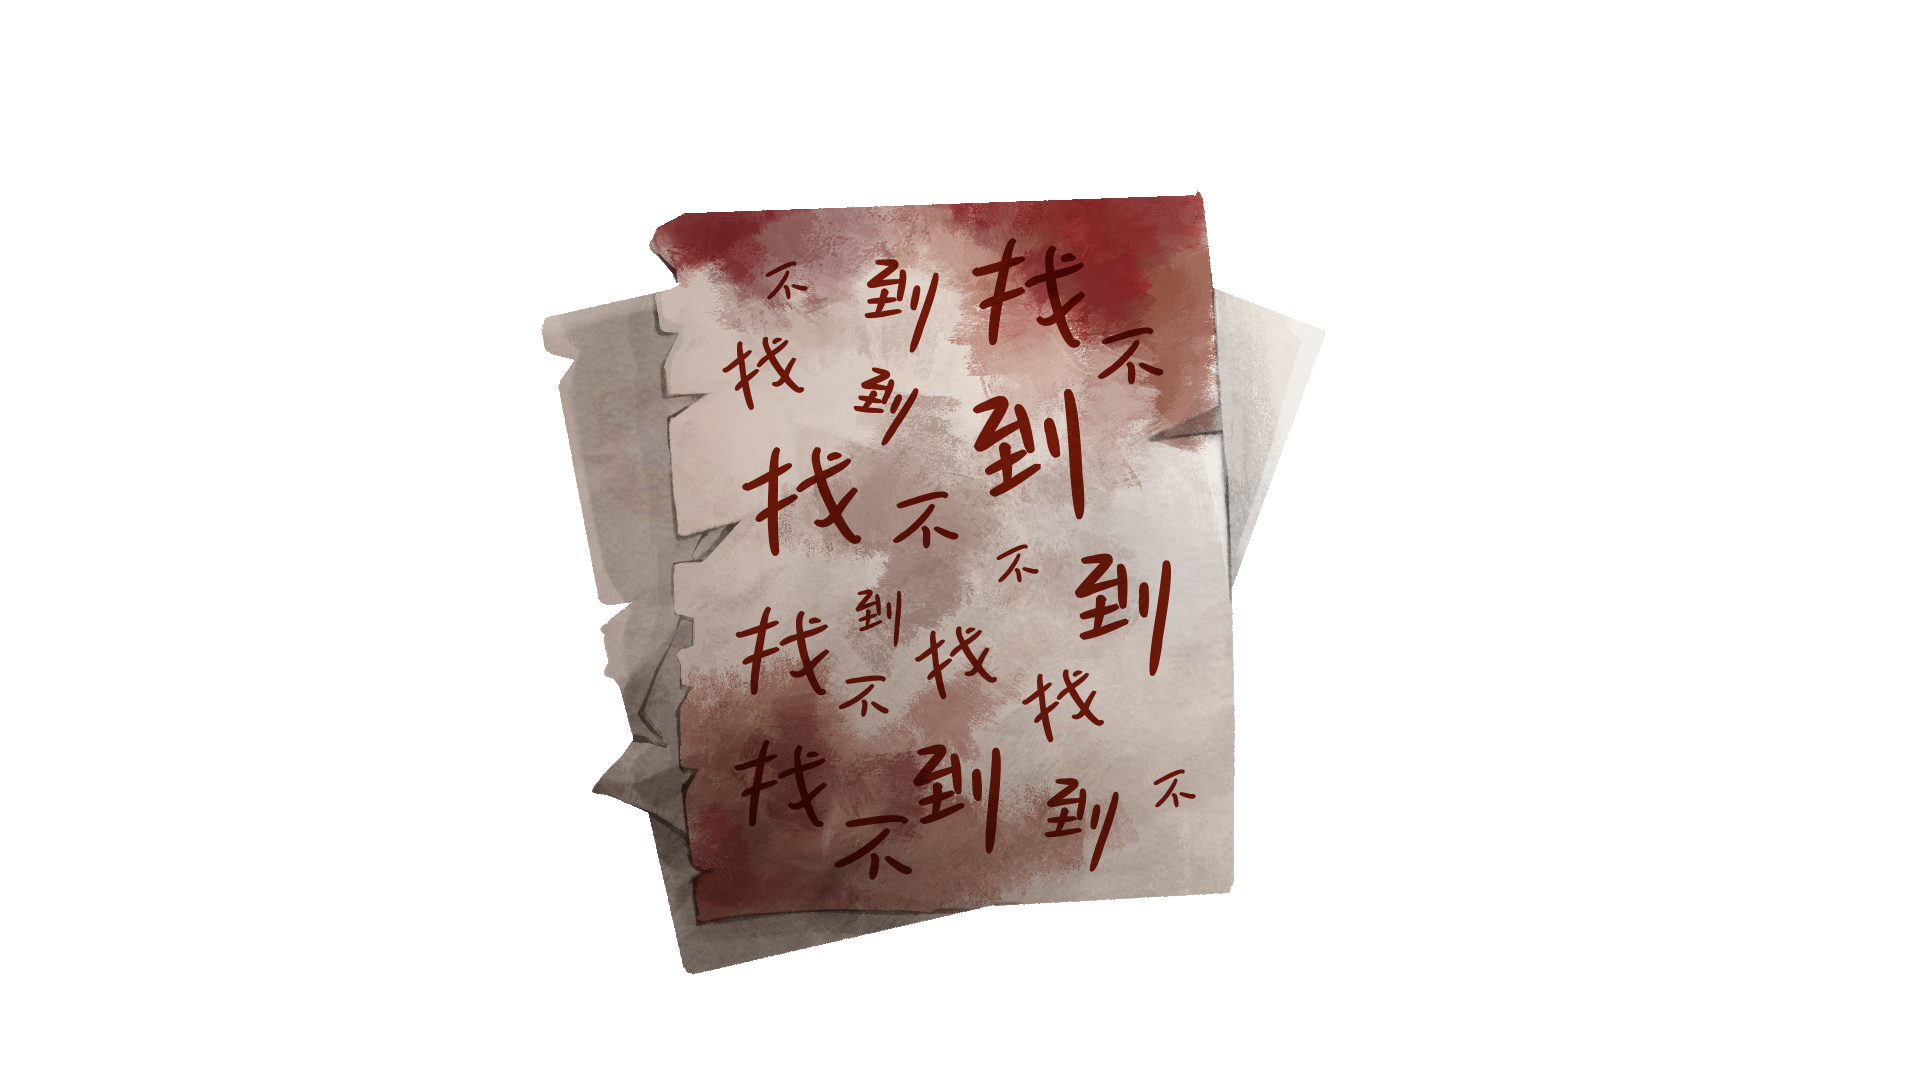 不到找
找到不
找不到
不到
找到找
不找
找不到到不